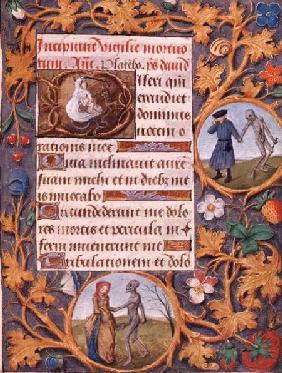 Incipiunt vigilie mortuo
rum. Añt. Placebo. ps david
ilexi qm
exaudiet
dominus
vocem o
rationis mee
Quia inclinauit aurē
suam michi et in diebz me
is inuocabo
Circundederunt me dolo
res mortis et pericula in
ferni inuenerunt me
Tribulationem et dolo